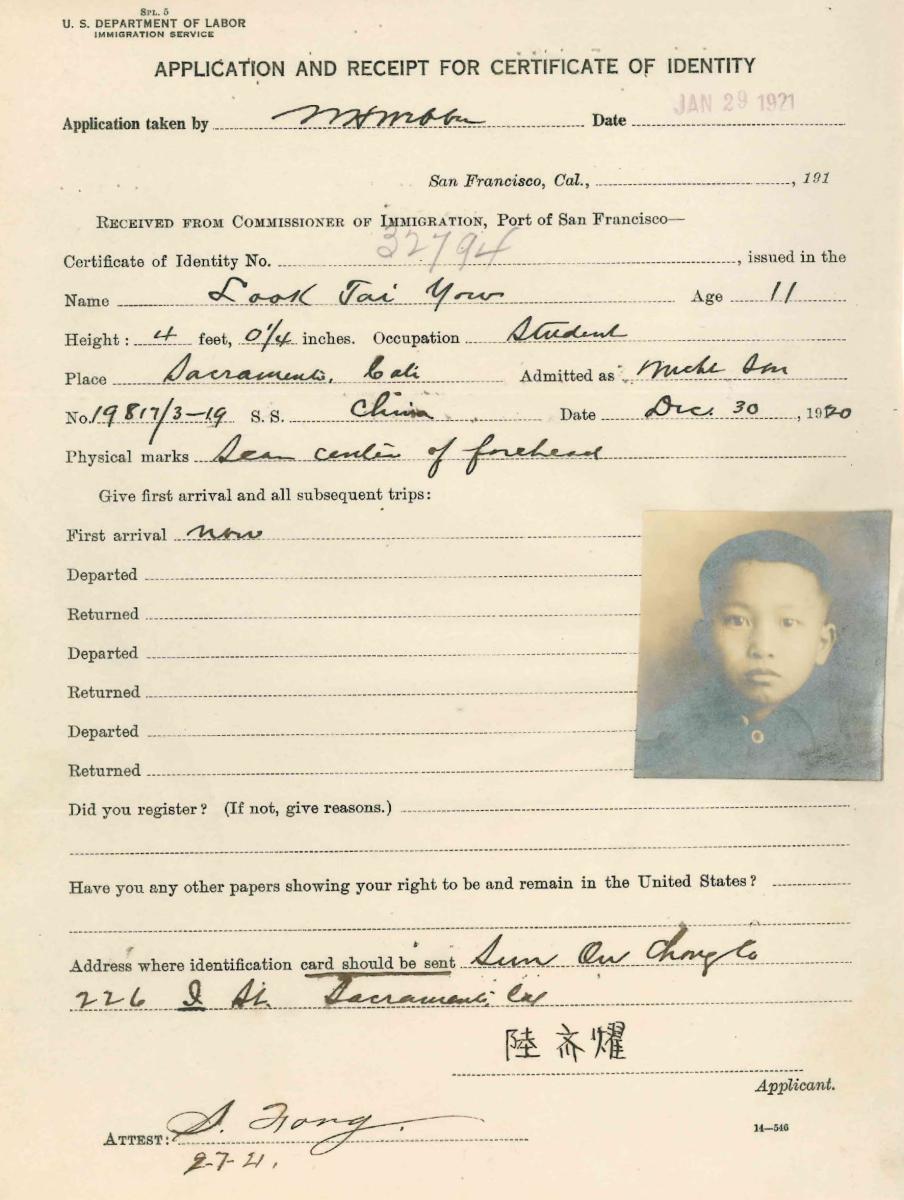 SPL. 5
U. S. DEPARTMENT OF LABOR
IMMIGRATION SERVICE
APPLICATION AND RECEIPT FOR CERTIFICATE OF IDENTITY
Application taken by Date JAN 29 1921
San Francisco, Cal., , 191
RECEIVED FROM COMMISSIONER OF IMMIGRATION, PORT OF SAN FRANCISCO—
Certificate of Identity No. 32794 , issued in the
Name Look Tai Yow Age 11
Height: 4 feet, 0 1/4 inches. Occupation Student
Place Sacramento, Cali Admitted as Mcht Son
No. 19817/3-19 S. S. China Date Dec. 30 , 1920
Physical marks Scar center of forehead
Give first arrival and all subsequent trips:
First arrival now
Departed
Returned
Departed
Returned
Departed
Returned
Did you register? (If not, give reasons.)
Have you any other papers showing your right to be and remain in the United States?
Address where identification card should be sent Sun On Chong Co
226 I St. Sacramento, Cal
陸亦耀
Applicant.
ATTEST: S. Fong.
14—546
2-7-21.